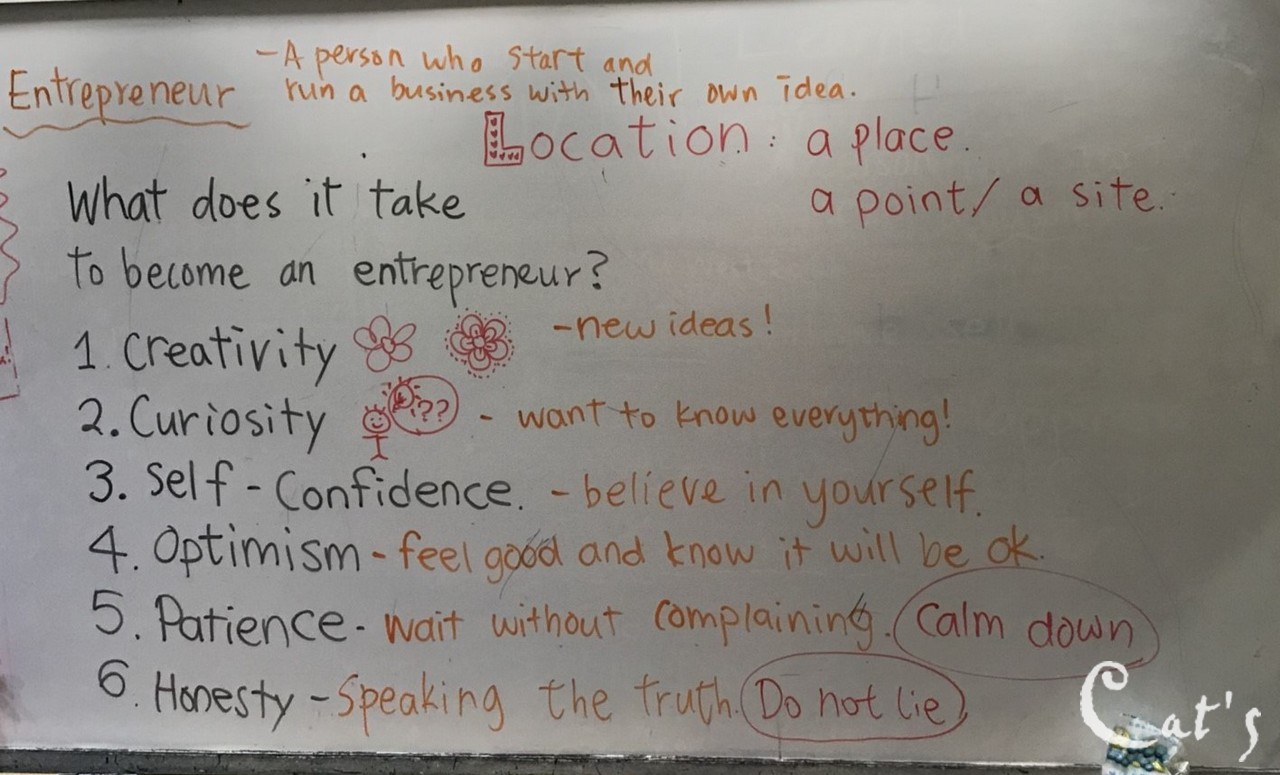 - A person who start and
Entrepreneur run a business with their own idea.
Location : a place.
a point/ a site.
What does it take
to become an entrepreneur?
1. Creativity - new ideas!
2. Curiosity ?? - want to know everything!
3. Self - Confidence. - believe in yourself.
4. Optimism - feel good and know it will be ok.
5. Patience - wait without complaining. Calm down
6. Honesty - Speaking the truth. Do not lie
Cat's